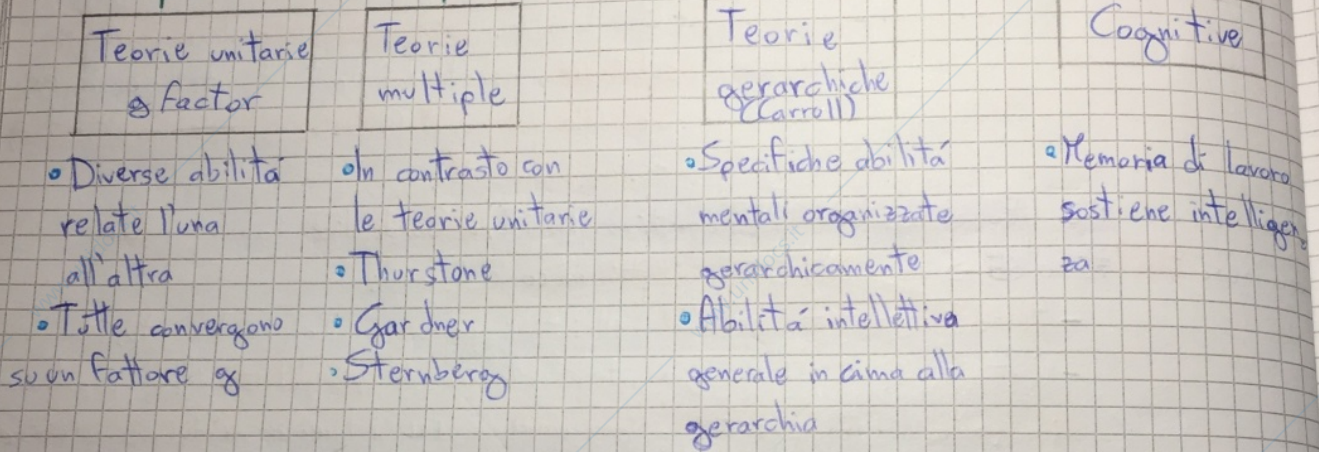 Teorie unitarie
g factor
• Diverse abilità
relate l'una
all'altra
• Tutte convergono
su un fattore g
Teorie
multiple
• In contrasto con
le teorie unitarie
• Thurstone
• Gardner
• Sternberg
Teorie
gerarchiche
(Carroll)
• Specifiche abilità
mentali organizzate
gerarchicamente
• Abilità intellettiva
generale in cima alla
gerarchia
Cognitive
• Memoria di lavoro
sostiene intelligen
za